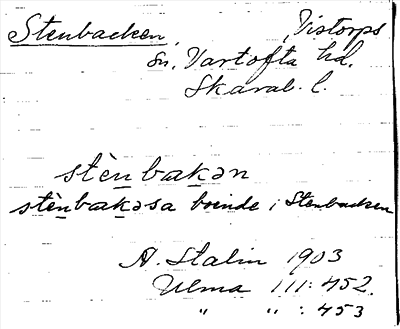 Stenbacken, Vistorps
sn, Vartofta hd.
Skarab. l.
stèn bakən
stènbakəsa boende i Stenbacken
A. Stalin 1903
Ulma 111:452.
" " : 453